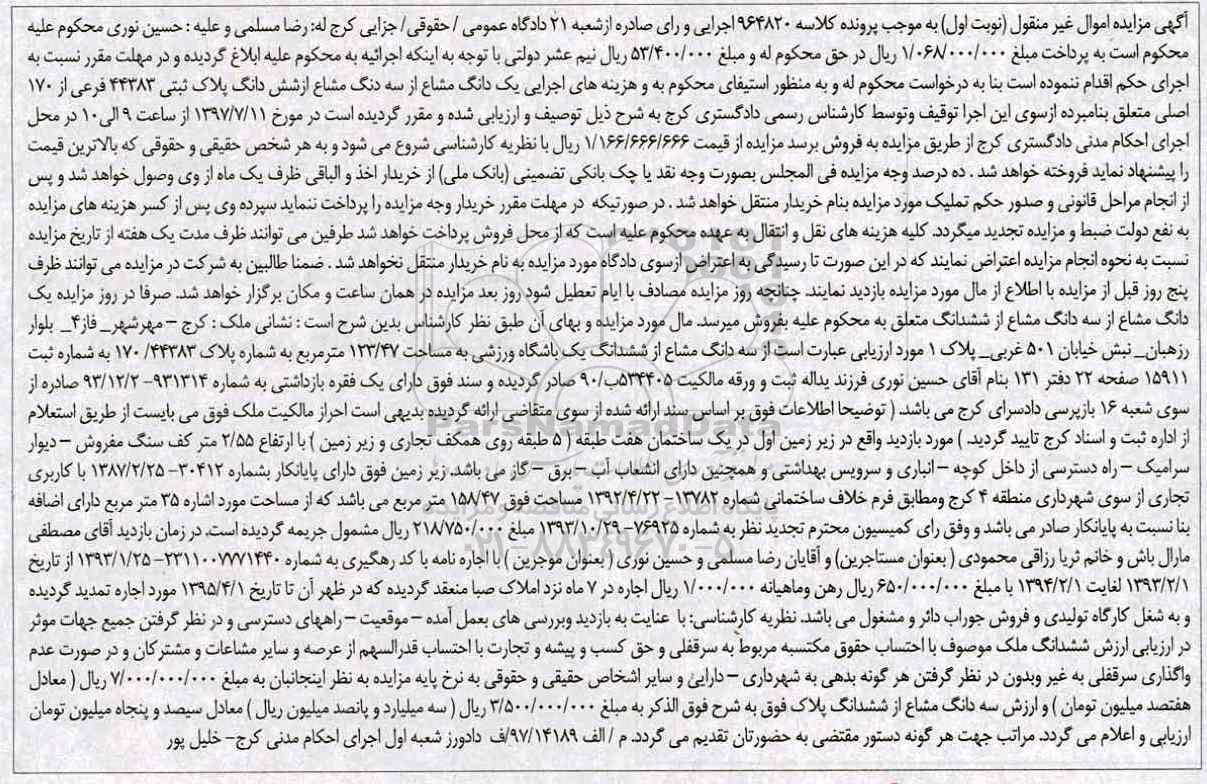 آگهی مزایده اموال غیر منقول (نوبت اول) به موجب پرونده کلاسه ۹۶۴۸۲۰ اجرایی و رای صادره ازشعبه ۲۱ دادگاه عمومی / حقوقی/ جزایی کرج له: رضا مسلمی و علیه : حسین نوری محکوم علیه
محکوم است به پرداخت مبلغ ۱/۰۶۸/۰۰۰/۰۰۰ ریال در حق محکوم له و مبلغ ۵۳/۴۰۰/۰۰۰ ریال نیم عشر دولتی با توجه به اینکه اجرائیه به محکوم علیه ابلاغ گردیده و در مهلت مقرر نسبت به
اجرای حکم اقدام ننموده است بنا به درخواست محکوم له و به منظور استیفای محکوم به و هزینه های اجرایی یک دانگ مشاع از سه دنگ مشاع ازشش دانگ پلاک ثبتی ۴۴۳۸۳ فرعی از ۱۷۰
اصلی متعلق بنامبرده ازسوی این اجرا توقیف وتوسط کارشناس رسمی دادگستری کرج به شرح ذیل توصیف و ارزیابی شده و مقرر گردیده است در مورخ ۱۳۹۷/۷/۱۱ از ساعت ۹ الی۱۰ در محل
اجرای احکام مدنی دادگستری کرج از طریق مزایده به فروش برسد مزایده از قیمت ۱/۱۶۶/۶۶۶/۶۶۶ ریال با نظریه کارشناسی شروع می شود و به هر شخص حقیقی و حقوقی که بالاترین قیمت
را پیشنهاد نماید فروخته خواهد شد . ده درصد وجه مزایده فی المجلس بصورت وجه نقد یا چک بانکی تضمینی (بانک ملی) از خریدار اخذ و الباقی ظرف یک ماه از وی وصول خواهد شد و پس
از انجام مراحل قانونی و صدور حکم تملیک مورد مزایده بنام خریدار منتقل خواهد شد . در صورتیکه در مهلت مقرر خریدار وجه مزایده را پرداخت ننماید سپرده وی پس از کسر هزینه های مزایده
به نفع دولت ضبط و مزایده تجدید میگردد. کلیه هزینه های نقل و انتقال به عهده محکوم علیه است که از محل فروش پرداخت خواهد شد طرفین می توانند ظرف مدت یک هفته از تاریخ مزایده
نسبت به نحوه انجام مزایده اعتراض نمایند که در این صورت تا رسیدگی به اعتراض ازسوی دادگاه مورد مزایده به نام خریدار منتقل نخواهد شد . ضمنا طالبین به شرکت در مزایده می توانند ظرف
پنج روز قبل از مزایده با اطلاع از مال مورد مزایده بازدید نمایند. چنانچه روز مزایده مصادف با ایام تعطیل شود روز بعد مزایده در همان ساعت و مکان برگزار خواهد شد. صرفا در روز مزایده یک
دانگ مشاع از سه دانگ مشاع از ششدانگ متعلق به محکوم علیه بفروش میرسد. مال مورد مزایده و بهای آن طبق نظر کارشناس بدین شرح است : نشانی ملک : کرج – مهرشهر_ فاز۴_ بلوار
رزهبان_ نبش خیابان ۵۰۱ غربی_ پلاک ۱ مورد ارزیابی عبارت است از سه دانگ مشاع از ششدانگ یک باشگاه ورزشی به مساحت ۱۲۳/۴۷ مترمربع به شماره پلاک ۴۴۳۸۳/ ۱۷۰ به شماره ثبت
۱۵۹۱۱ صفحه ۲۲ دفتر ۱۳۱ بنام آقای حسین نوری فرزند یداله ثبت و ورقه مالکیت ۵۳۴۴۰۵ب/۹۰ صادر گردیده و سند فوق دارای یک فقره بازداشتی به شماره ۹۳۱۳۱۴– ۹۳/۱۲/۲ صادره از
سوی شعبه ۱۶ بازپرسی دادسرای کرج می باشد. ( توضیحا اطلاعات فوق بر اساس سند ارائه شده از سوی متقاضی ارائه گردیده بدیهی است احراز مالکیت ملک فوق می بایست از طریق استعلام
از اداره ثبت و اسناد کرج تایید گردید. ) مورد بازدید واقع در زیر زمین اول در یک ساختمان هفت طبقه ( ۵ طبقه روی همکف تجاری و زیر زمین ) با ارتفاع ۲/۵۵ متر کف سنگ مفروش – دیوار
سرامیک – راه دسترسی از داخل کوچه – انباری و سرویس بهداشتی و همچنین دارای انشعاب آب – برق – گاز می باشد. زیر زمین فوق دارای پایانکار بشماره ۳۰۴۱۲– ۱۳۸۷/۲/۲۵ با کاربری
تجاری از سوی شهرداری منطقه ۴ کرج ومطابق فرم خلاف ساختمانی شماره ۱۳۷۸۲– ۱۳۹۲/۴/۲۲ مساحت فوق ۱۵۸/۴۷ متر مربع می باشد که از مساحت مورد اشاره ۳۵ متر مربع دارای اضافه
بنا نسبت به پایانکار صادر می باشد و وفق رای کمیسیون محترم تجدید نظر به شماره ۷۶۹۲۵– ۱۳۹۳/۱۰/۲۹ مبلغ ۲۱۸/۷۵۰/۰۰۰ ریال مشمول جریمه گردیده است. در زمان بازدید آقای مصطفی
مارال باش و خانم ثریا رزاقی محمودی ( بعنوان مستاجرین) و آقایان رضا مسلمی و حسین نوری ( بعنوان موجرین ) با اجاره نامه با کد رهگیری به شماره ۲۳۱۱۰۰۷۷۷۱۴۴۰– ۱۳۹۳/۱/۲۵ از تاریخ
۱۳۹۳/۲/۱ لغایت ۱۳۹۴/۲/۱ با مبلغ ۶۵۰/۰۰۰/۰۰۰ ریال رهن وماهیانه ۱/۰۰۰/۰۰۰ ریال اجاره در ۷ ماه نزد املاک صبا منعقد گردیده که در ظهر آن تا تاریخ ۱۳۹۵/۴/۱ مورد اجاره تمدید گردیده
و به شغل کارگاه تولیدی و فروش جوراب دائر و مشغول می باشد. نظریه کارشناسی: با عنایت به بازدید وبررسی های بعمل آمده – موقعیت – راههای دسترسی و در نظر گرفتن جمیع جهات موثر
در ارزیابی ارزش ششدانگ ملک موصوف با احتساب حقوق مکتسبه مربوط به سرقفلی و حق کسب و پیشه و تجارت با احتساب قدرالسهم از عرصه و سایر مشاعات و مشترکان و در صورت عدم
واگذاری سرقفلی به غیر وبدون در نظر گرفتن هر گونه بدهی به شهرداری – دارایی و سایر اشخاص حقیقی و حقوقی به نرخ پایه مزایده به نظر اینجانبان به مبلغ ۷/۰۰۰/۰۰۰/۰۰۰ ریال ( معادل
هفتصد میلیون تومان ) و ارزش سه دانگ مشاع از ششدانگ پلاک فوق به شرح فوق الذکر به مبلغ ۳/۵۰۰/۰۰۰/۰۰۰ ریال ( سه میلیارد و پانصد میلیون ریال ) معادل سیصد و پنجاه میلیون تومان
ارزیابی و اعلام می گردد. مراتب جهت هر گونه دستور مقتضی به حضورتان تقدیم می گردد. م / الف ۹۷/۱۴۱۸۹/ف دادورز شعبه اول اجرای احکام مدنی کرج– خلیل پور
ParsNamadData
پایگاه اطلاع رسانی مناقصه و مزایده
۰۲۱–۸۸۳۴۹۶۷۰–۵